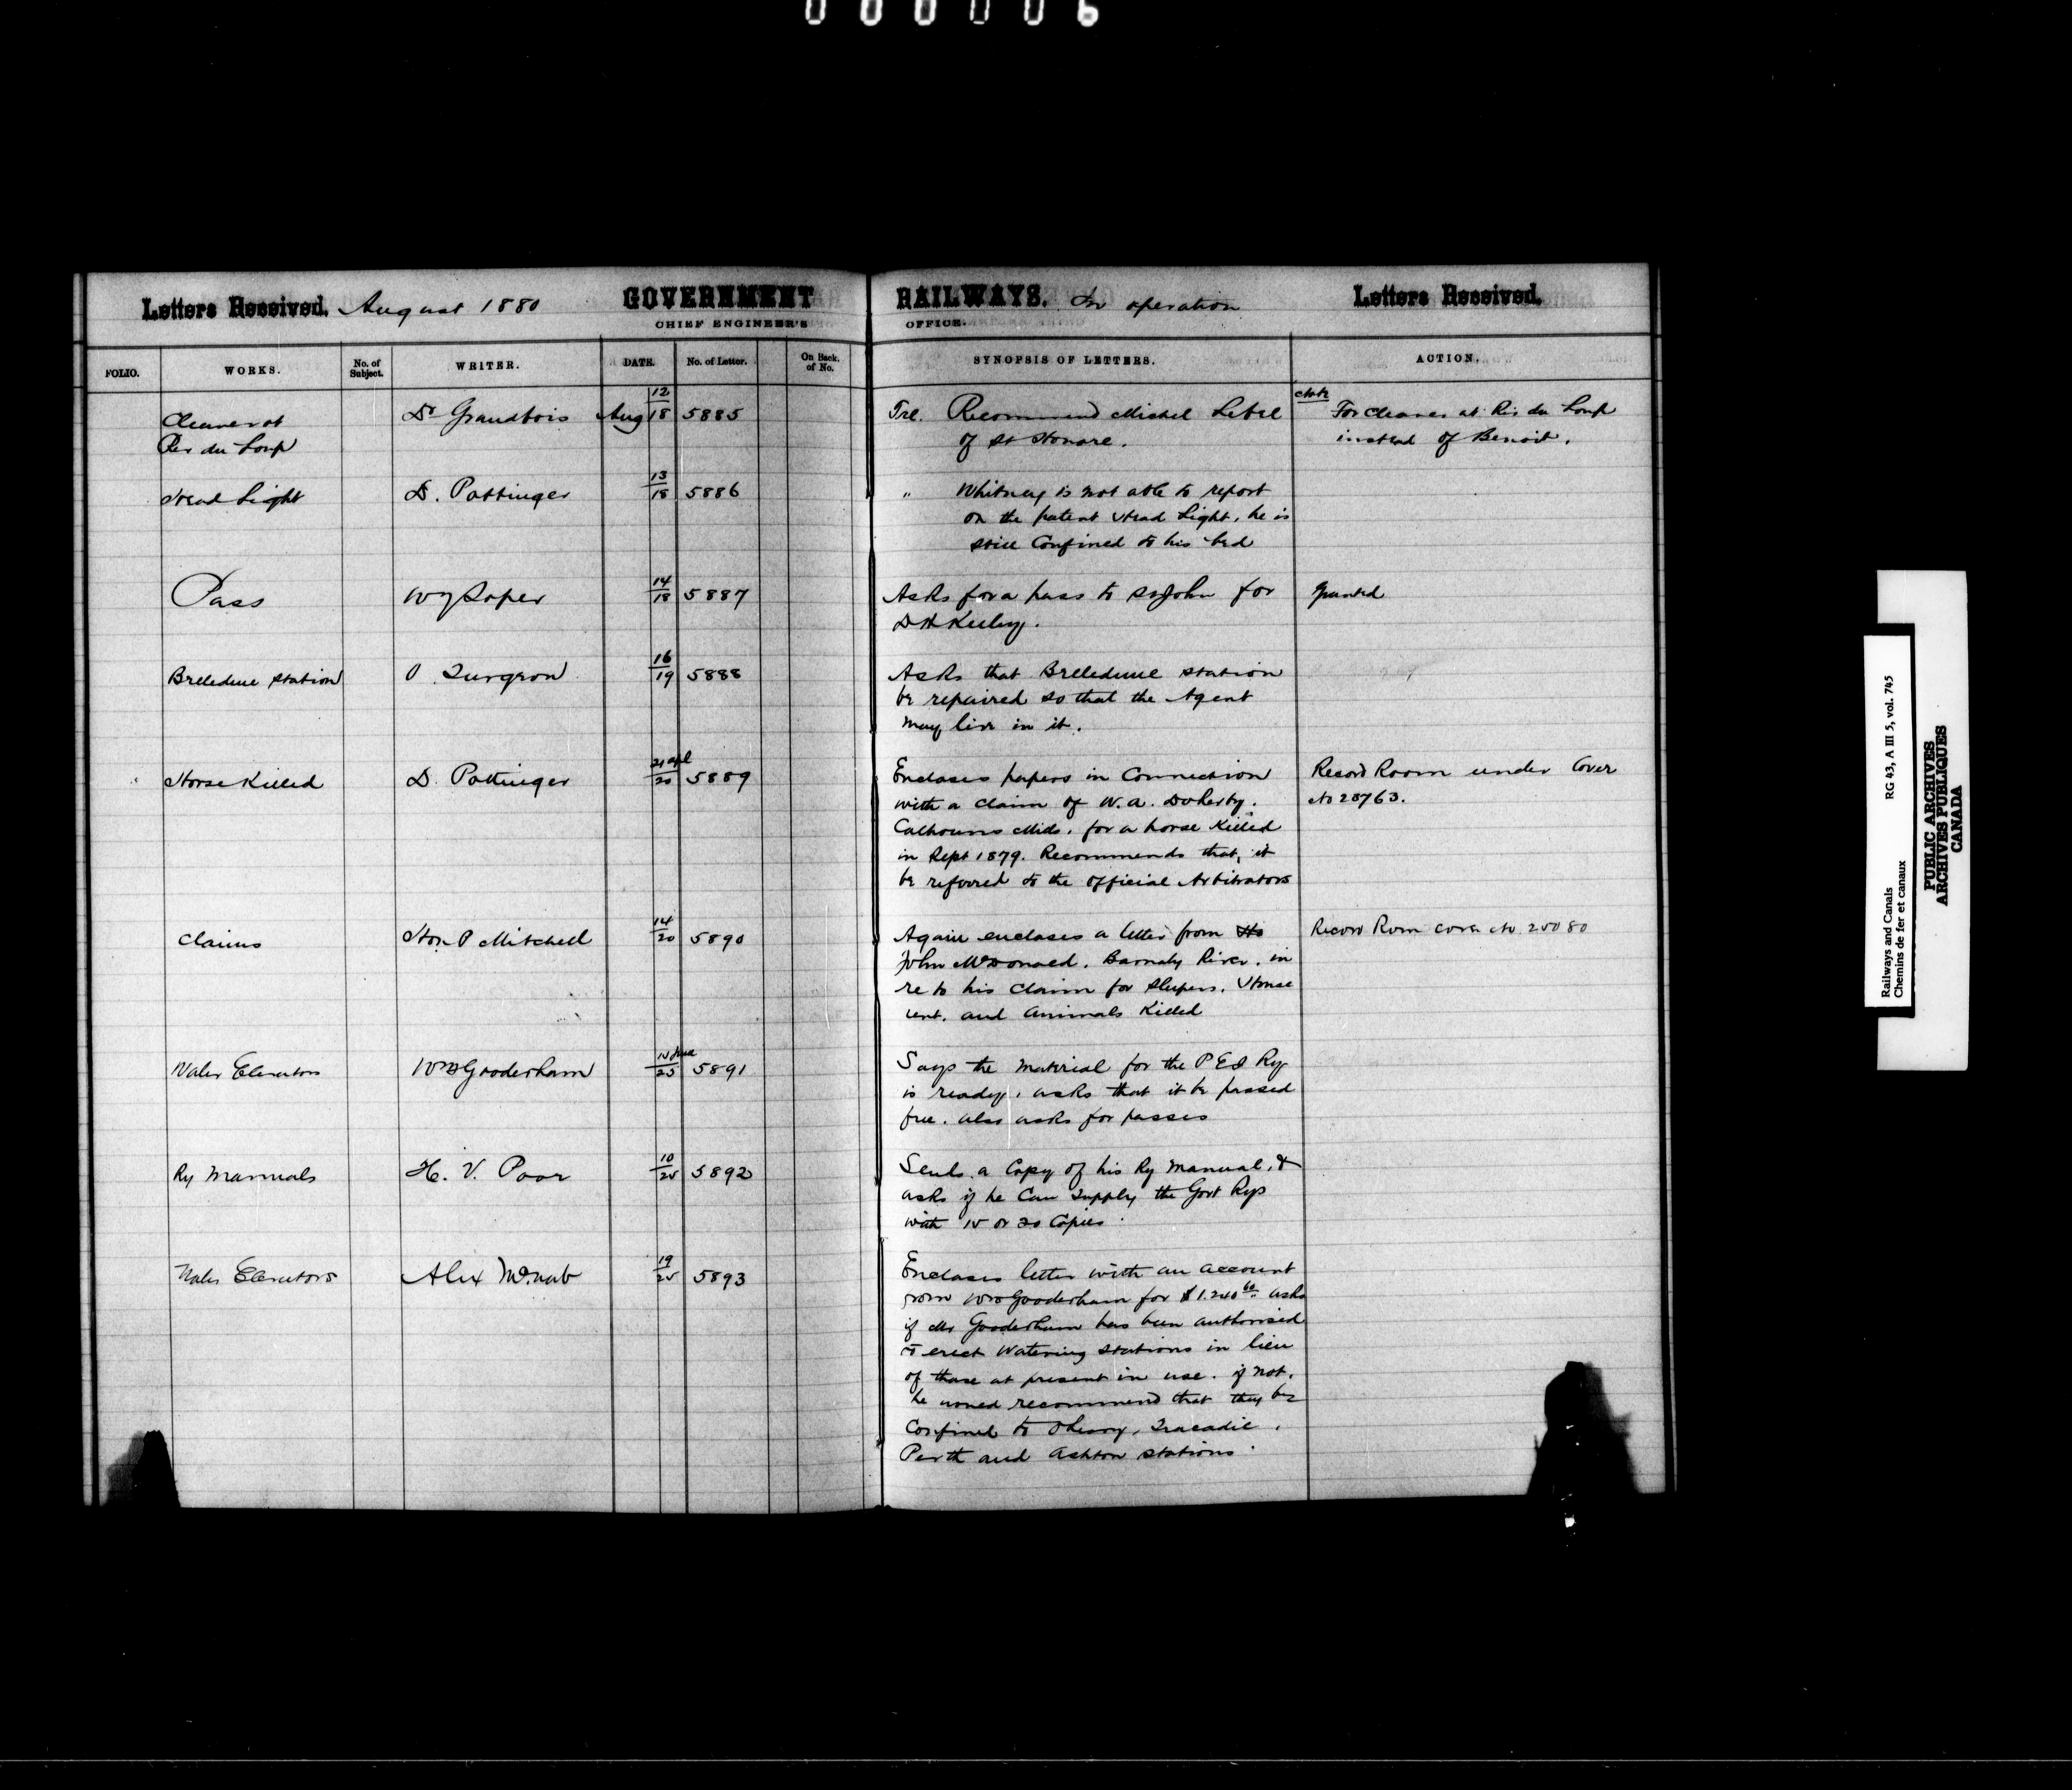 000006
Letters Received. August 1880 GOVERNMENT RAILWAYS. In operation Letters Received.
CHIEF ENGINEER'S OFFICE.
FOLIO. WORKS. No. of Subject. WRITER. DATE. No. of Letter. On Back. of No. SYNOPSIS OF LETTERS. ACTION.
Cleaner at Dr Grandbois Aug 12/18 5885 Tel. Recommend Michel Lebel For cleaner at Riv du Loup
Riv du Loup of St Honore. instead of Benoit.
Head Light D. Pottinger 13/18 5886 " Whitney is not able to report
on the patent Head Light, he is
still Confined to his bed
Pass W Y Soper 14/18 5887 Asks for a pass to St John for Granted
D H Keeley.
Belledune station O Turgeon 16/19 5888 Asks that Belledune station
be repaired so that the Agent
may live in it.
Horse Killed D. Pottinger 21 apl/20 5889 Encloses papers in Connection Record Room under Cover
with a claim of W. A. Doherty. No 28763.
Calhouns Mills, for a horse Killed
in Sept 1879. Recommends that, it
be referred to the official Arbitrators
Claims Hon P Mitchell 14/20 5890 Again encloses a letter from Record Room cover No 25080
John McDonald, Barnaby River, in
re to his Claim for Sleepers, House
rent, and Animals Killed
Water Elevators Wm Gooderham 15 June/25 5891 Says the Material for the P E I Ry
is ready, asks that it be passed
free. also asks for passes
Ry Manuals H. V. Poor 10/25 5892 Sends a Copy of his Ry Manual, &
asks if he Can Supply the Govt Rys
with 15 or 20 Copies.
Water Elevators Alex McNab 19/25 5893 Encloses letter with an account
from Wm Gooderham for $1.240 60 asks
if Mr Gooderham has been authorised
to erect Watering stations in lieu
of those at present in use. if not,
he would recommend that they be
Confined to O'Leary, Tracadie,
Perth and Ashton stations.
Railways and Canals RG 43, A III 5, vol. 745
Chemins de fer et canaux
PUBLIC ARCHIVES
ARCHIVES PUBLIQUES
CANADA